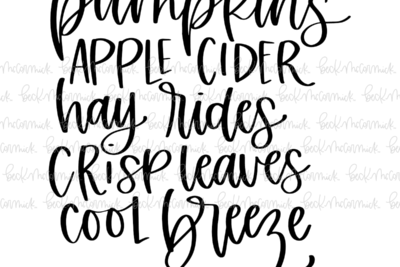 pumpkins
APPLE CIDER
hay rides
CRiSP leaves
COOL breeze